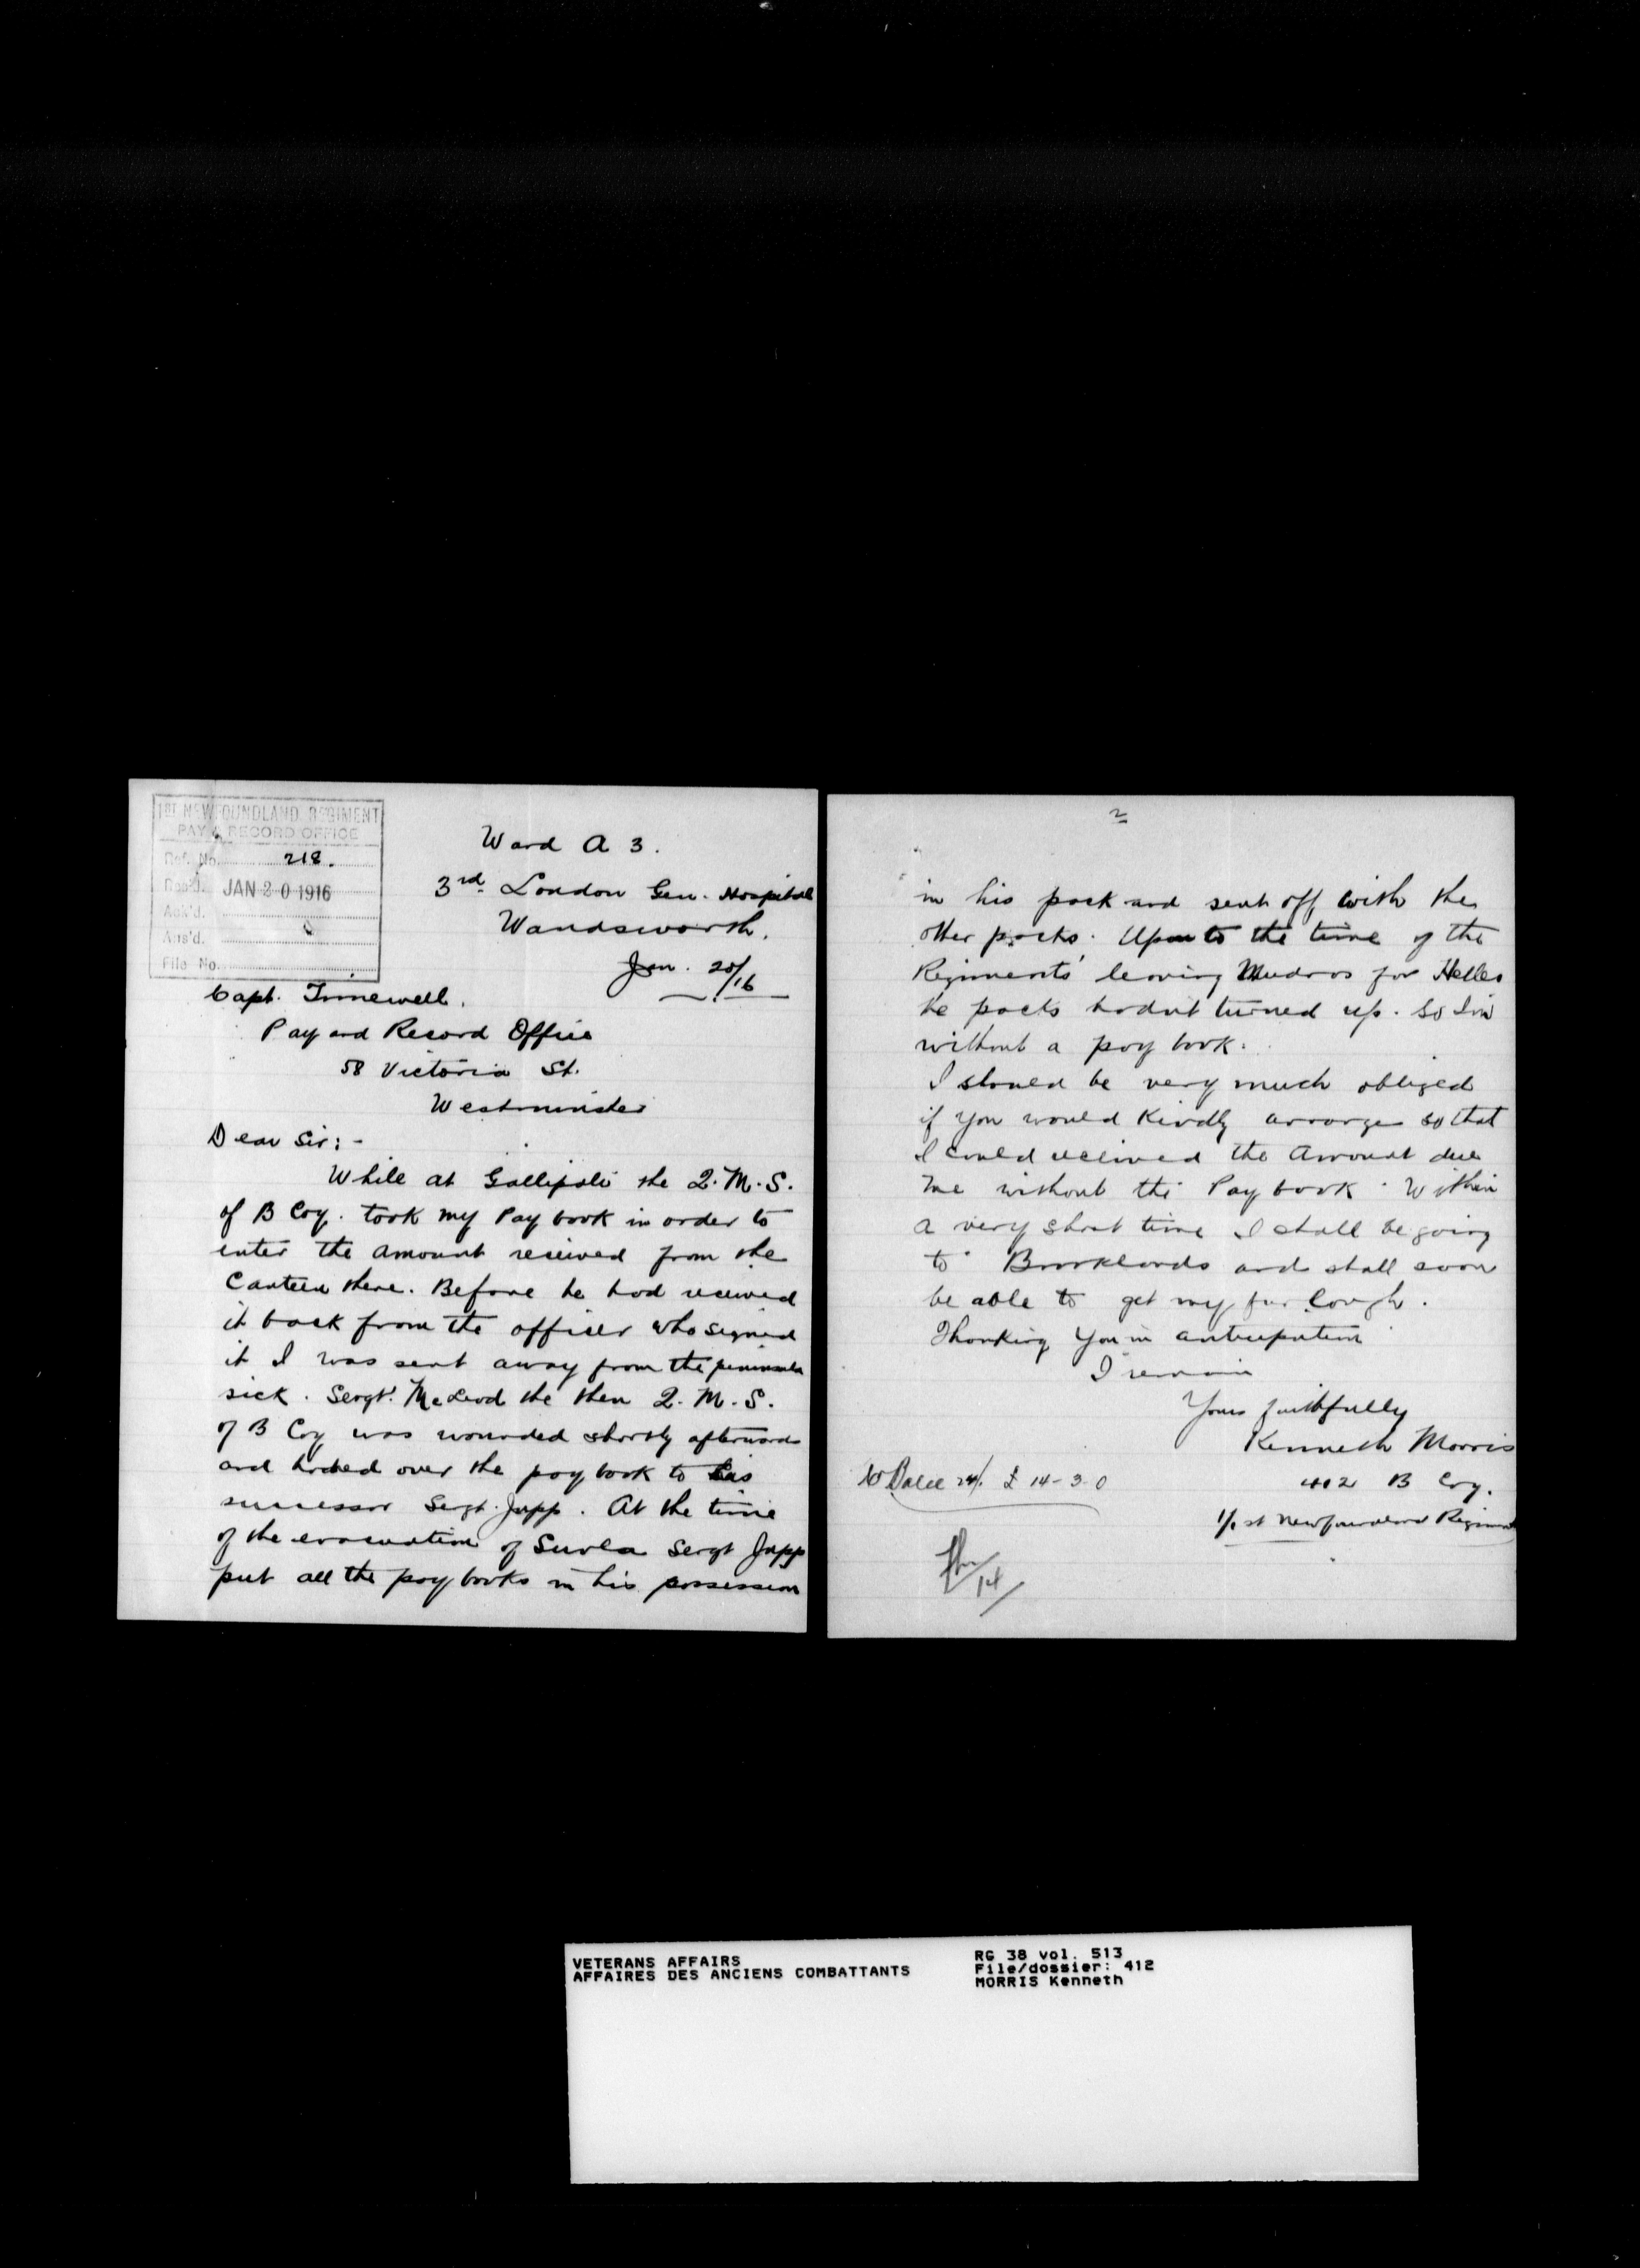 1ST NEWFOUNDLAND REGIMENT
PAY & RECORD OFFICE
Ref. No. 218.
Rec'd. JAN 20 1916
Ack'd.
Ans'd.
File No.
Ward A 3.
3rd London Gen. Hospital
Wandsworth.
Jan. 20/16
Capt. Timewell.
Pay and Record Office
58 Victoria St.
Westminster
Dear Sir:-
While at Gallipoli the Q.M.S.
of B Coy. took my Pay book in order to
enter the amount received from the
Canteen there. Before he had received
it back from the officer who signed
it I was sent away from the peninsula
sick. Sergt. McLeod the then Q.M.S.
of B Coy was wounded shortly afterwards
and handed over the pay book to his
successor Sergt. Jupp. At the time
of the evacuation of Suvla Sergt Jupp
put all the pay books in his possession
2
in his pack and sent off with the
other packs. Up to the time of the
Regiments' leaving Mudros for Helles
he packs hadnt turned up. So I'm
without a pay book.
I should be very much obliged
if you would kindly arrange so that
I could received the Amount due
me without the Pay book. Within
a very short time I shall be going
to Brooklands and shall soon
be able to get my furlough.
Thanking You in anticipation
I remain
Yours faithfully
Kenneth Morris
412 B Coy.
1/1st Newfoundland Regiment
£ 14-3-0
14/
VETERANS AFFAIRS
AFFAIRES DES ANCIENS COMBATTANTS
RG 38 vol. 513
File/dossier: 412
MORRIS Kenneth